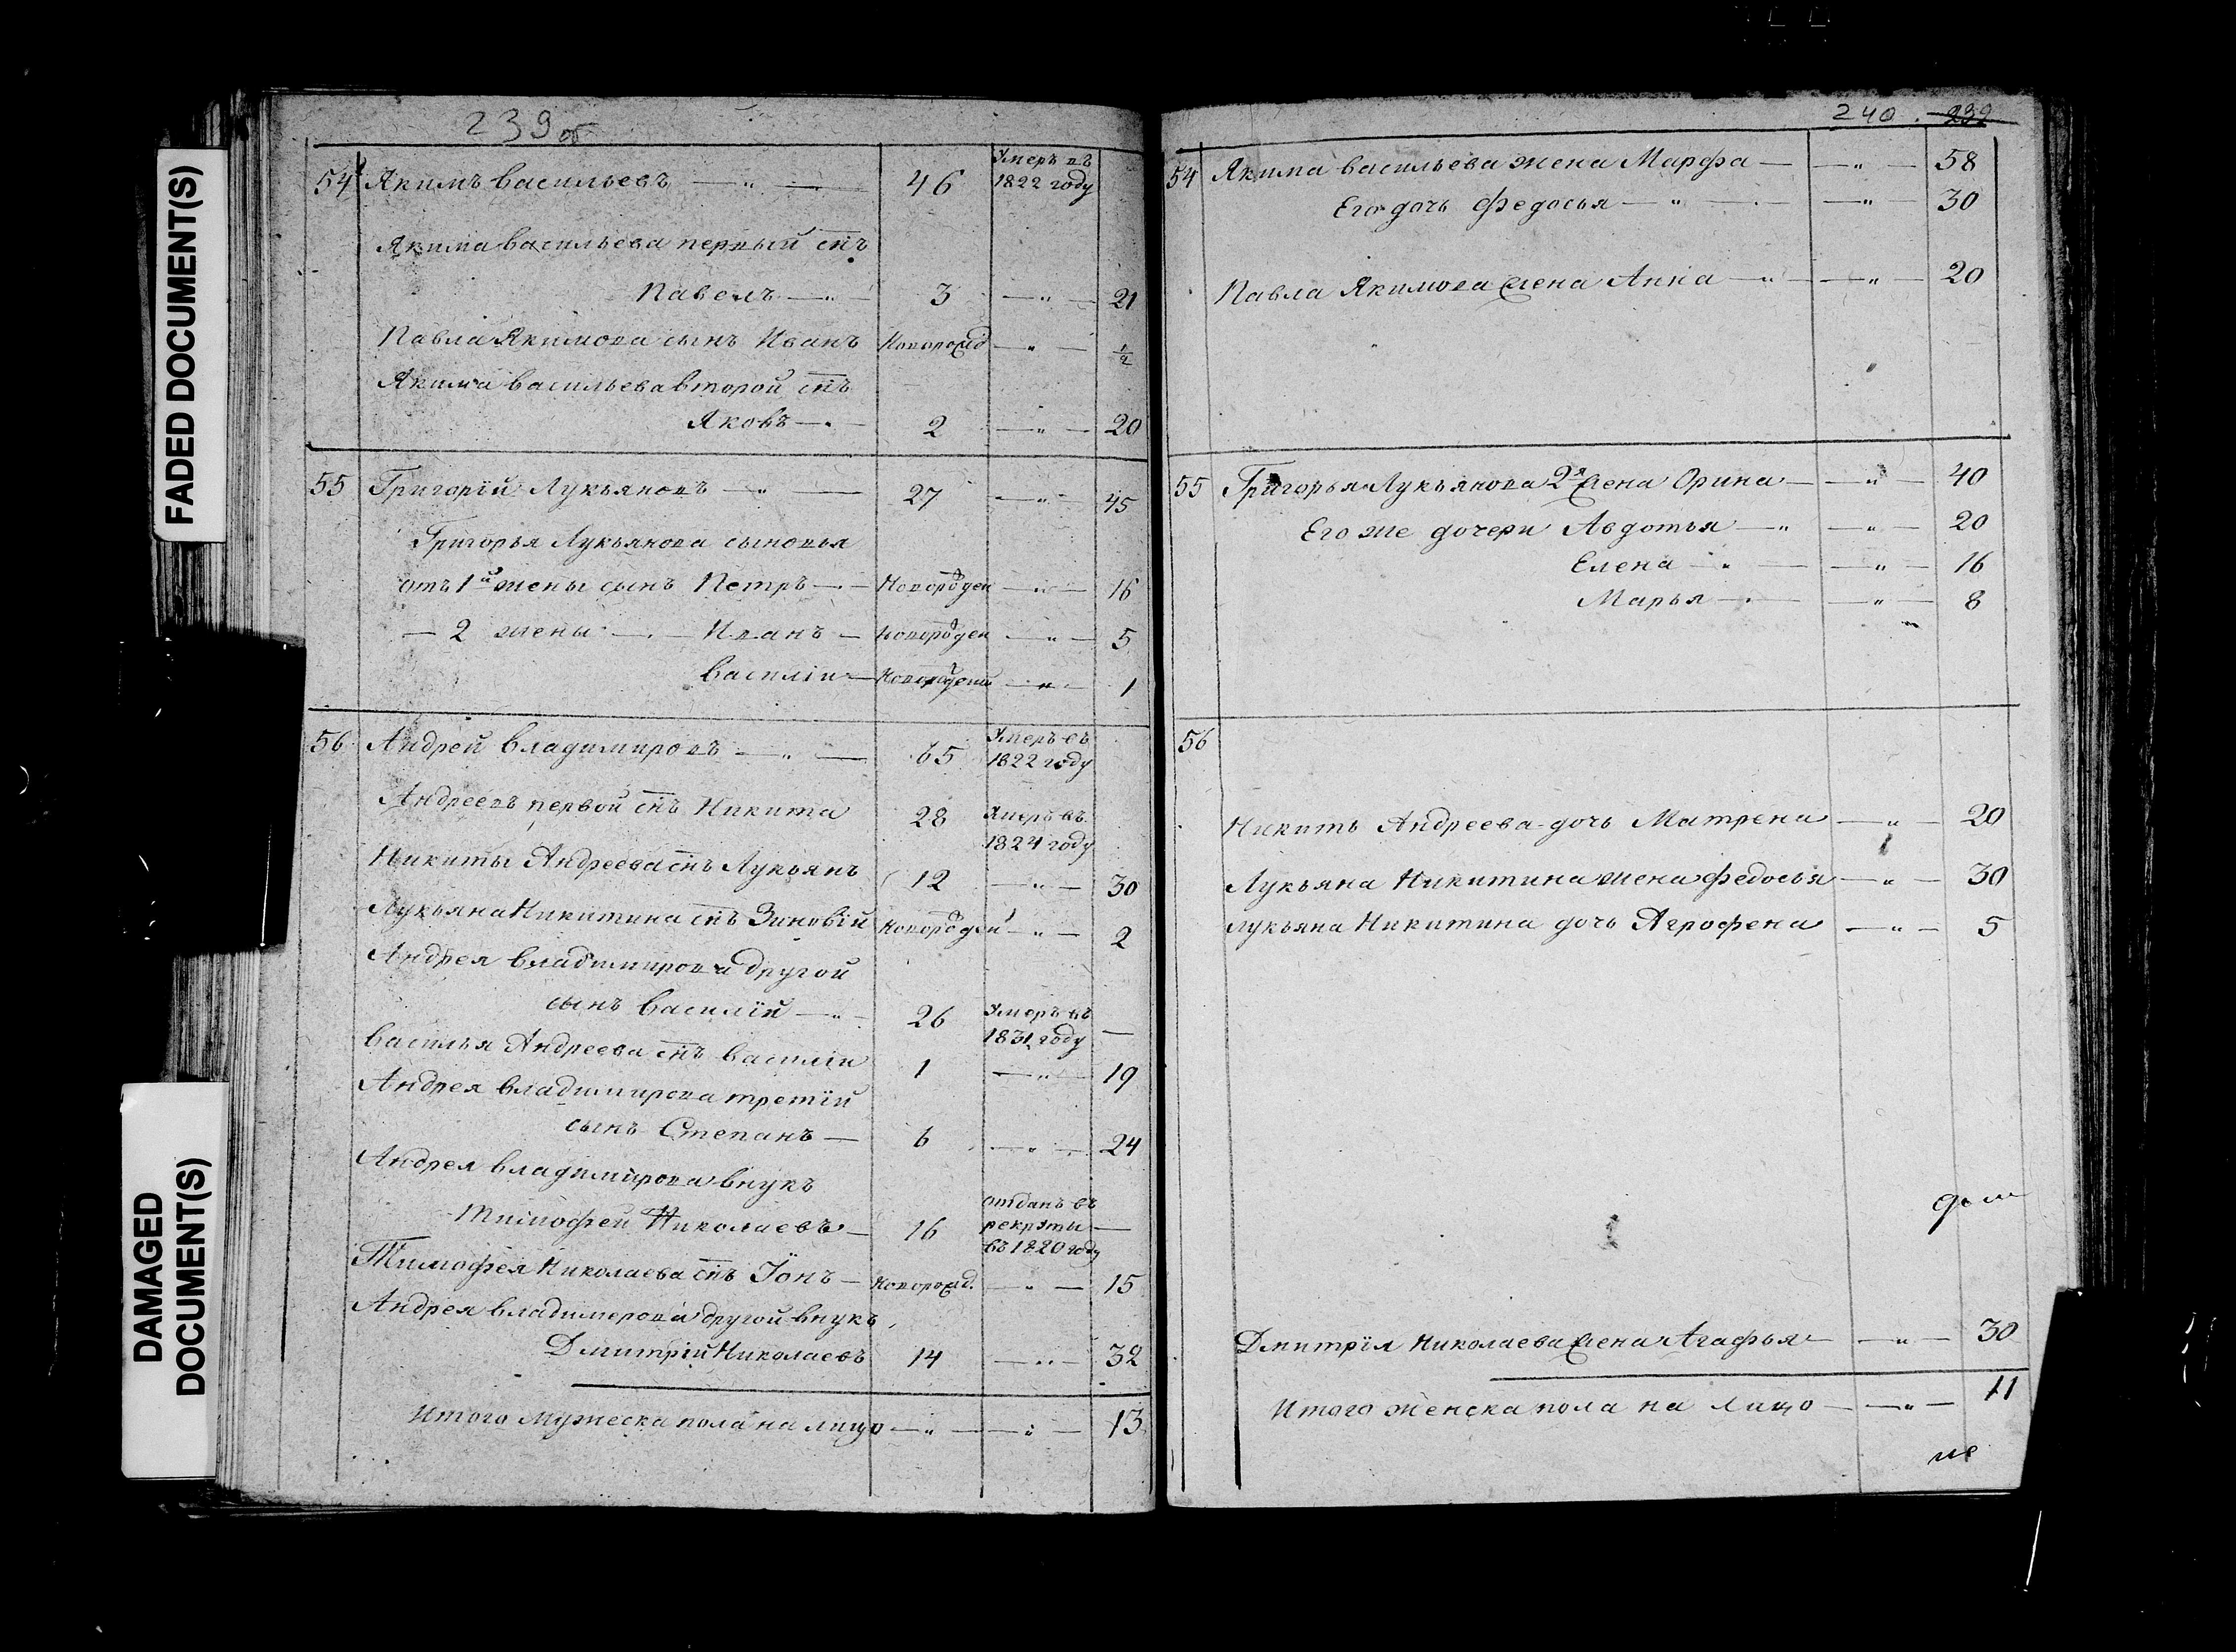 FADED DOCUMENT(S)
DAMAGED
DOCUMENT(S)
239 об
54 Якимъ Васильевъ — " — 46 Умеръ въ
1822 году
Якима Васильева первый снъ
Павелъ — " — 3 — " — 21
Павла Якимова сынъ Иванъ Новорожд — " — 1/2
Якима Васильева второй снъ
Яковъ — " — 2 — " — 20
55 Григорій Лукьяновъ — " — 27 — " — 45
Григорья Лукьянова сыновья
отъ 1й жены сынъ Петръ — Новорожден — " — 16
— 2 жены — " — Иванъ — новорожден — " — 5
Василіи — Новорожден — " — 1
56 Андрей Владимировъ — " — 65 Умеръ въ
1822 году
Андреевъ первой снъ Никита 28 Умеръ въ
1824 году
Никиты Андреева снъ Лукьянъ 12 — " — 30
Лукьяна Никитина снъ Зиновій новорожден — " — 2
Андрея Владимирова другой
сынъ Василій — " — 26 Умеръ въ
1831 году —
Василья Андреева снъ Василіи 1 — " — 19
Андрея Владимирова третій
сынъ Степанъ — 6 — " — 24
Андрея Владимирова внукъ
Тимофей Николаевъ — 16 отданъ въ
рекруты —
въ 1820 году
Тимофея Николаева снъ Іонъ — новорожд. — " — 15
Андрея Владимерова другой внукъ
Дмитрій Николаевъ 14 — " — 32
Итого мужеска пола на лицо — " — — " — 13
240. 239
54 Якима Васильева жена Марфа — — " — 58
Его дочь Федосья — " — — " — 30
Павла Якимова жена Анна — " — — " — 20
55 Григорья Лукьянова 2я жена Орина — — " — 40
Его же дочери Авдотья — " — " — 20
Елена — " — — " — 16
Марья — " — — " — 8
56
Никиты Андреева дочь Матрена — " — 20
Лукьяна Никитина жена Федосья — " — 30
Лукьяна Никитина дочь Агрофена — " — 5
Дмитрія Николаева жена Агафья — — " — 30
Итого женска пола на лицо — — " — 11